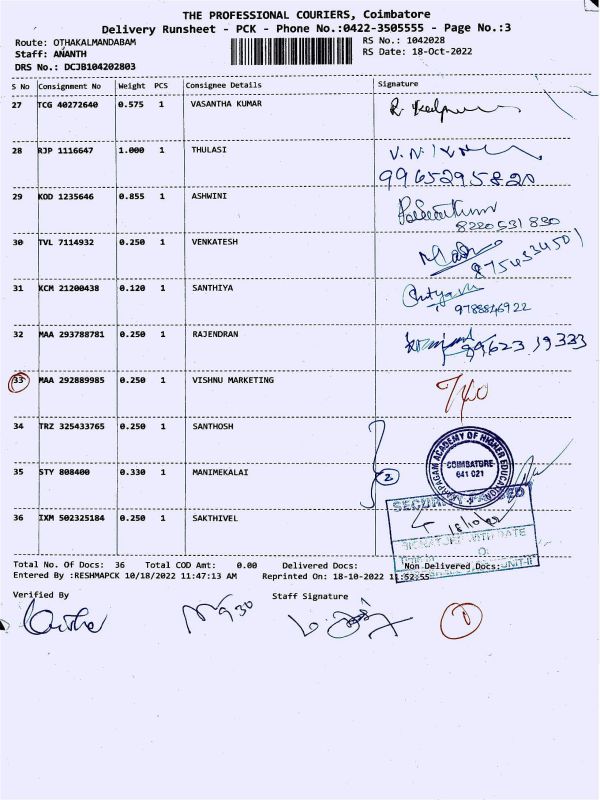 THE PROFESSIONAL COURIERS, Coimbatore
Delivery Runsheet - PCK - Phone No.:0422-3505555 - Page No.:3
Route: OTHAKALMANDABAM RS No.: 1042028
Staff: ANANTH RS Date: 18-Oct-2022
DRS No.: DCJB104202803
S No Consignment No Weight PCS Consignee Details Signature
27 TCG 40272640 0.575 1 VASANTHA KUMAR
28 RJP 1116647 1.000 1 THULASI
9965295820
29 KOD 1235646 0.855 1 ASHWINI
8220531830
30 TVL 7114932 0.250 1 VENKATESH
31 KCM 21200438 0.120 1 SANTHIYA
9788846922
32 MAA 293788781 0.250 1 RAJENDRAN
99623 19333
33 MAA 292889985 0.250 1 VISHNU MARKETING
34 TRZ 325433765 0.250 1 SANTHOSH
ACADEMY OF HIGHER EDUCATION
COIMBATORE
641 021
35 STY 808400 0.330 1 MANIMEKALAI
2
36 IXM 502325184 0.250 1 SAKTHIVEL
18/10/22
SIGNATURE WITH DATE
Total No. Of Docs: 36 Total COD Amt: 0.00 Delivered Docs: Non Delivered Docs:
Entered By :RESHMAPCK 10/18/2022 11:47:13 AM Reprinted On: 18-10-2022 11:52:55
Verified By Staff Signature
930
1